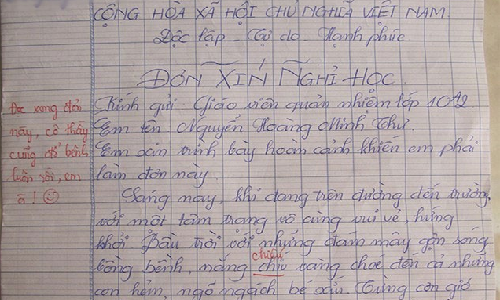 CỘNG HÒA XÃ HỘI CHỦ NGHĨA VIỆT NAM.
Độc lập - Tự do - Hạnh phúc
ĐƠN XIN NGHỈ HỌC
Kính gửi: Giáo viên quản nhiệm lớp 10A2
Em tên Nguyễn Hoàng Minh Thư.
Em xin trình bày hoàn cảnh khiến em phải
làm đơn này.
Sáng nay, khi đang trên đường đến trường,
với một tâm trạng vô cùng vui vẻ, hứng
khởi. Bầu trời với những đám mây gợn sóng
bồng bềnh, nắng chiếu vàng chóe đến cả những
con hẻm, ngõ ngách bé xíu. Từng cơn gió
Đọc xong đơn
này, cô thấy
cũng đổ bệnh
luôn rồi, em
ạ!